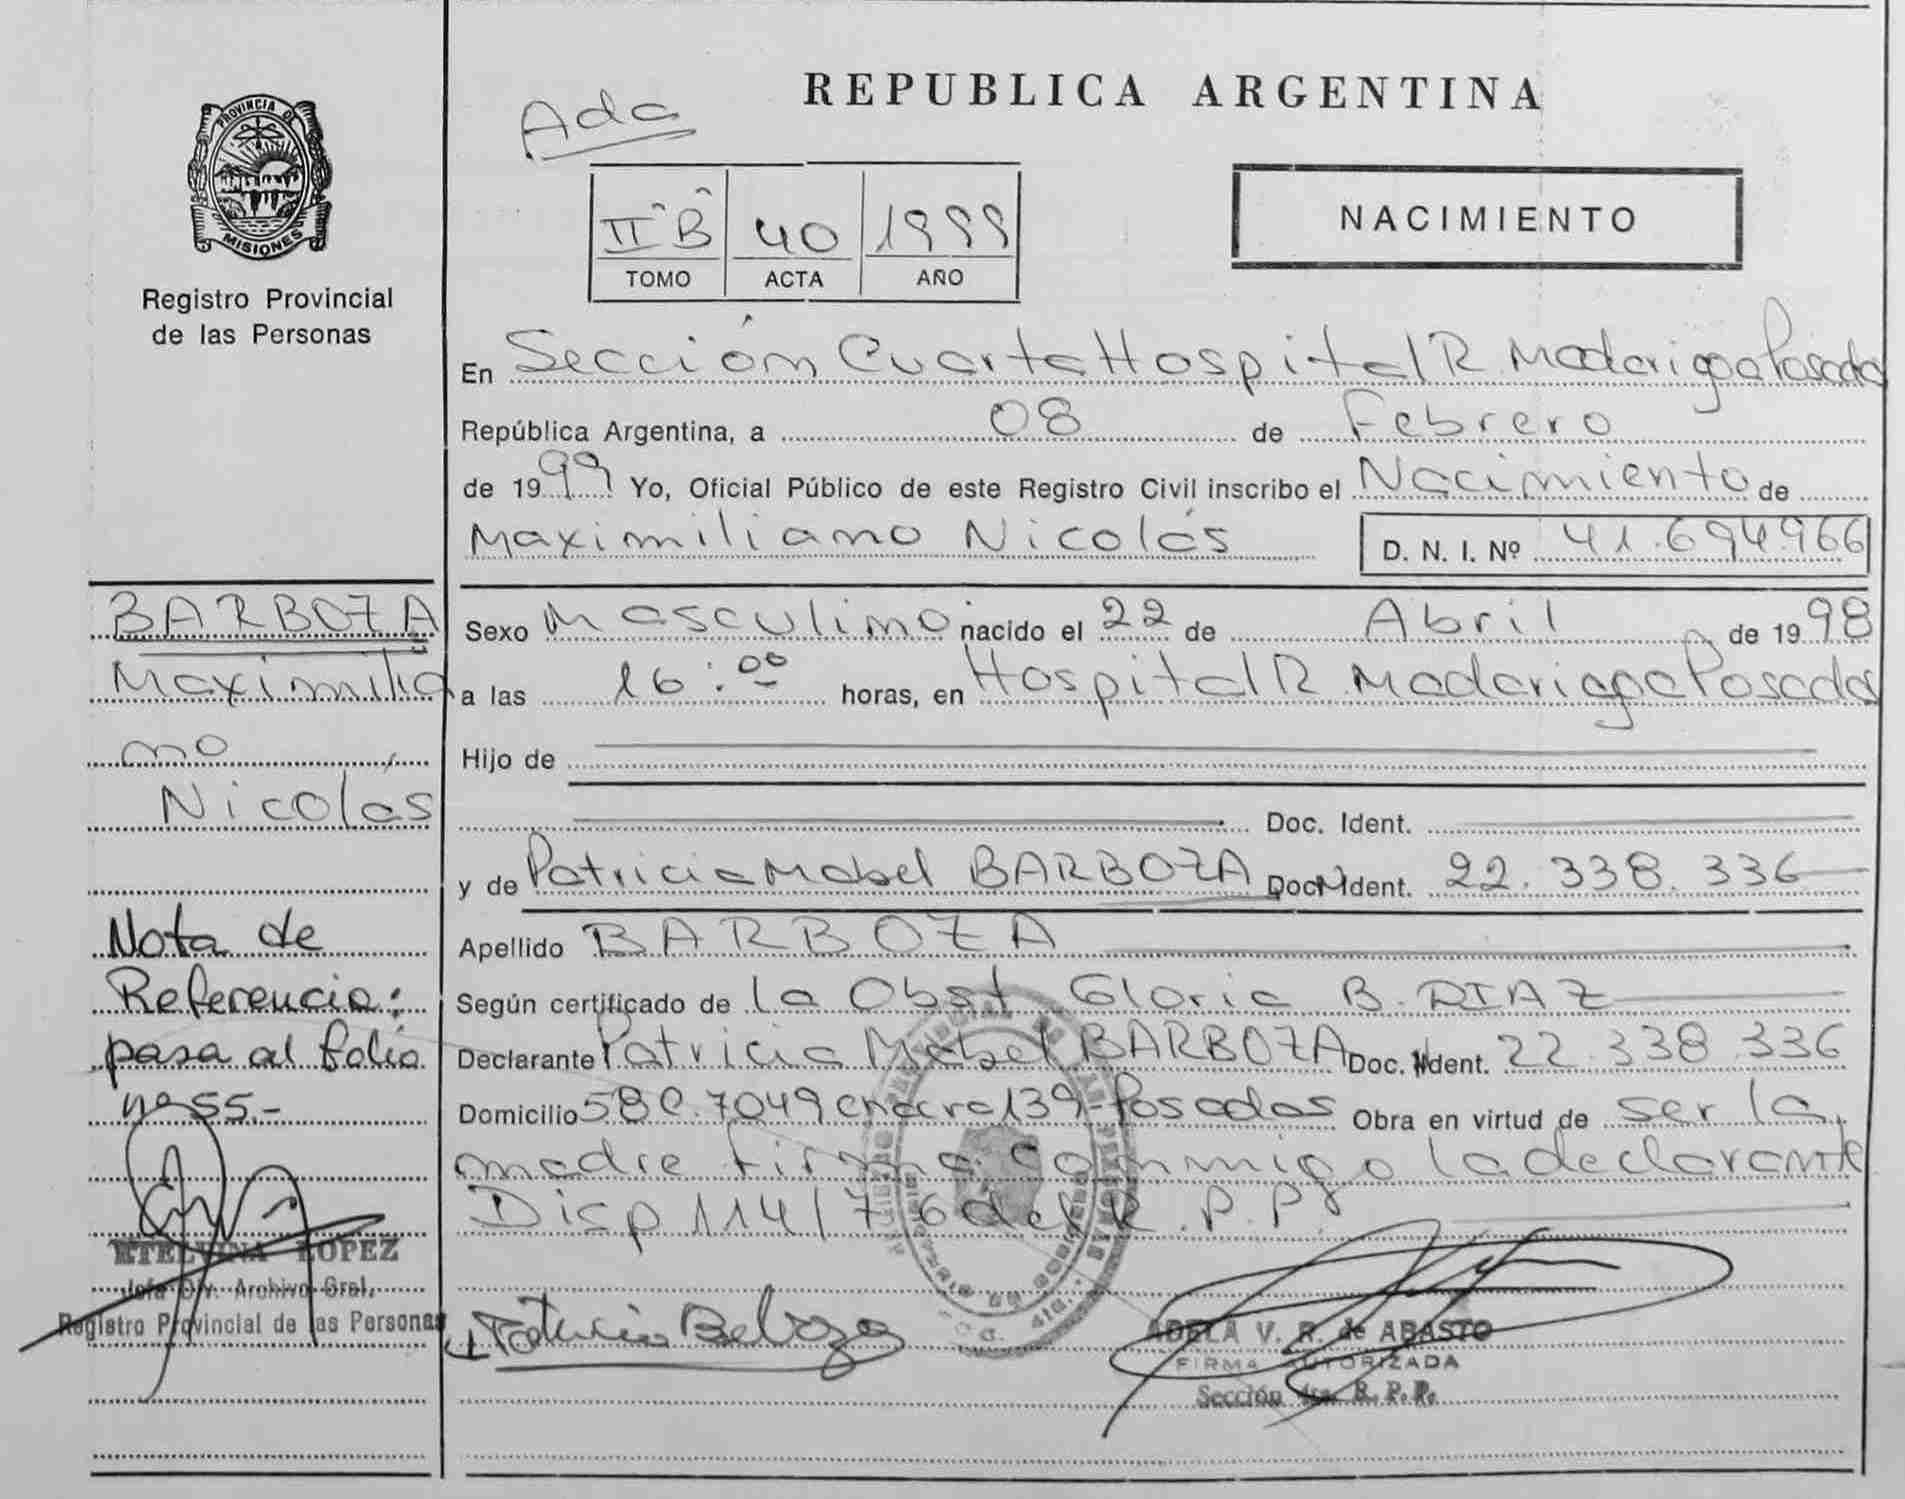 REPUBLICA ARGENTINA
Ada
PROVINCIA DE
MISIONES
Registro Provincial
de las Personas
II "B" 40 1999
TOMO ACTA AÑO
NACIMIENTO
En Sección Cuarta Hospital R. Madariaga Posadas
República Argentina, a 08 de Febrero
de 1999 Yo, Oficial Público de este Registro Civil inscribo el Nacimiento de
Maximiliano Nicolás D. N. I. Nº 41.694.966
BARBOZA
Maximilia
no
Nicolás
Sexo Masculino nacido el 22 de Abril de 1998
a las 16:00 horas, en Hospital R. Madariaga Posadas
Hijo de
Doc. Ident.
y de Patricia Mabel BARBOZA Doc. Ident. 22.338.336
Apellido BARBOZA
Según certificado de la Obst Gloria B. DIAZ
Declarante Patricia Mabel BARBOZA Doc. Ident. 22.338.336
Domicilio 58 C. 7049 chacra 139-Posadas Obra en virtud de ser la
madre firma conmigo la declarante
Disp 114/76 del R.P.P.
Nota de
Referencia:
pasa al folio
nº 55.-
ETELVINA LOPEZ
Jefa Div. Archivo Gral.
Registro Provincial de las Personas
Patricia Barboza
ADELA V. R. de ABASTO
FIRMA AUTORIZADA
Sección 4ta. R. P. P.